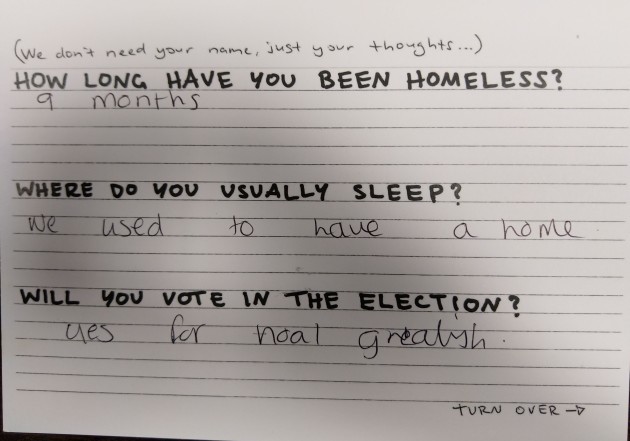 (We don't need your name, just your thoughts...)
HOW LONG HAVE YOU BEEN HOMELESS?
9 months
WHERE DO YOU USUALLY SLEEP?
We used to have a home
WILL YOU VOTE IN THE ELECTION?
yes for noal grealysh.
TURN OVER →